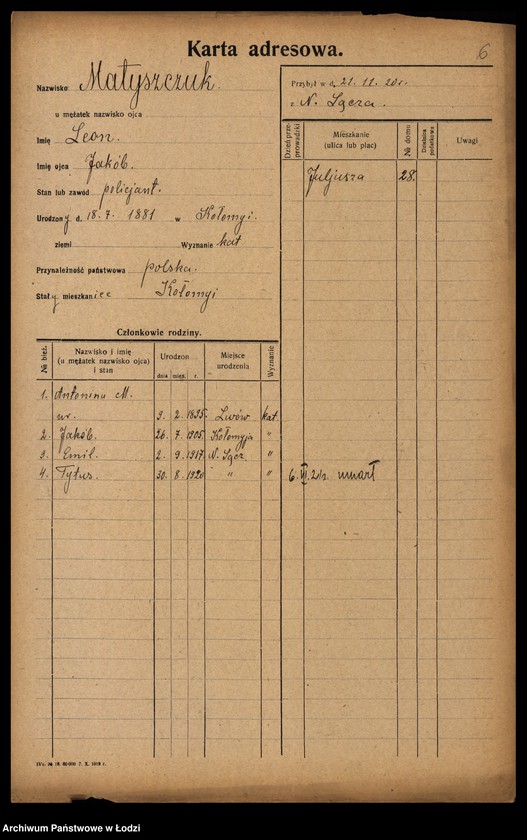 Karta adresowa.
6
Nazwisko Matyszczuk
u mężatek nazwisko ojca
Imię Leon.
Imię ojca Jakób.
Stan lub zawód policjant.
Urodzony d. 18. 7. 1881 w Kołomyi.
ziemi Wyznanie kat
Przynależność państwowa polska.
Stały mieszkaniec Kołomyi
Przybył w d. 21. 11. 20 r.
z N. Sącza.
Dzień przeprowadzki
Mieszkanie (ulica lub plac)
№ domu
Uwagi
Juljusza 28.
Członkowie rodziny.
№ bież.
Nazwisko i imię (u mężatek nazwisko ojca) i stan
Urodzon
dnia mies. r.
Miejsce urodzenia
Wyznanie
1. Antonina M.
ur. 3. 2. 1895. Lwów kat.
2. Jakób. 26. 7. 1905. Kołomyja "
3. Emil. 2. 9. 1917. N. Sącz. "
4. Tytus. 30. 8. 1920 " " 6. VI. 21r. umarł
IVc. 34. 18. 60000 7. X. 1918 r.
Archiwum Państwowe w Łodzi